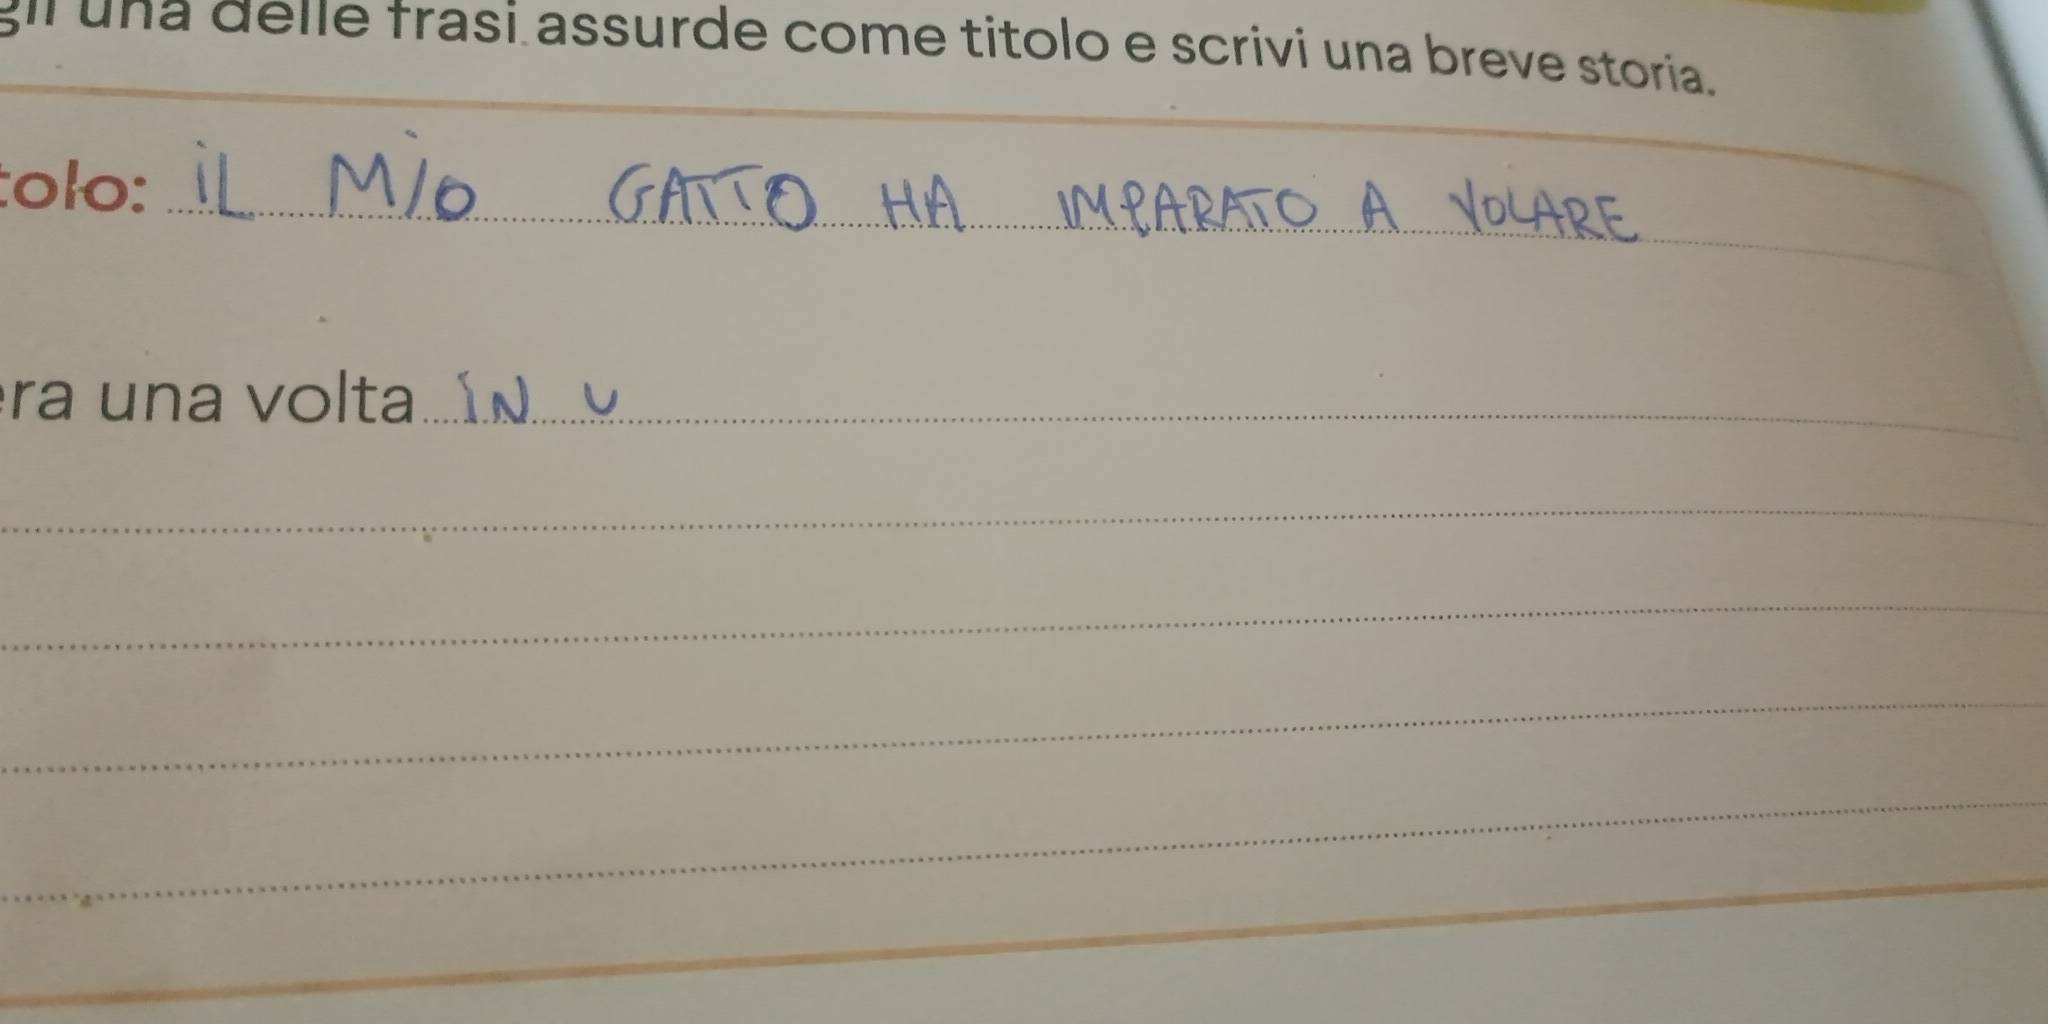 una delle frasi assurde come titolo e scrivi una breve storia.
tolo: IL MIO GATTO HA IMPARATO A VOLARE
era una volta IN U